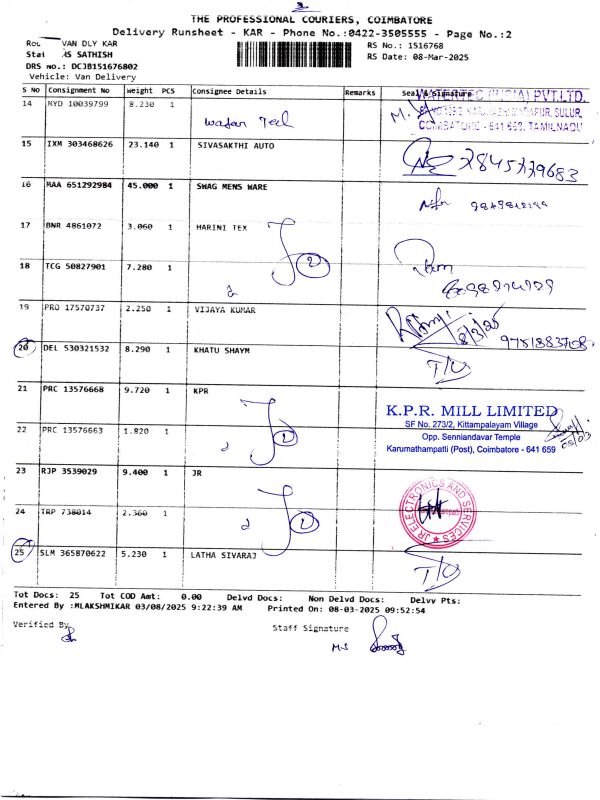 THE PROFESSIONAL COURIERS, COIMBATORE
Delivery Runsheet - KAR - Phone No.:0422-3505555 - Page No.:2
VAN DLY KAR
RS No.: 1516768
SATHISH
RS Date: 08-Mar-2025
DRS no.: DCJB151676802
Vehicle: Van Delivery
S No Consignment No Weight PCS Consignee Details Remarks Seal & Signature
14 MYD 10039799 8.230 -
COIMBATORE - 641 659, TAMILNADU
15 IXM 303468626 23.140 1 SIVASAKTHI AUTO
16 MAA 651292984 45.000 1 SWAG MENS WARE
17 BNR 4861072 3.060 1 HARINI TEX
2
18 TCG 50827901 7.280 1
19 PRO 17570737 2.250 1 VIJAYA KUMAR
8/3/25
20 DEL 530321532 8.290 1 KHATU SHAYM
21 PRC 13576668 9.720 1 KPR
K.P.R. MILL LIMITED
SF No. 273/2, Kittampalayam Village
Opp. Senniandavar Temple
Karumathampatti (Post), Coimbatore - 641 659
22 PRC 13576663 1.820 1
1
23 RJP 3539029 9.400 1 JR
JR ELECTRONICS AND SERVICES
24 TRP 738014 2.360 1
1
25 SLM 365870622 5.230 1 LATHA SIVARAJ
Tot Docs: 25 Tot COD Amt: 0.00 Delvd Docs: Non Delvd Docs: Delvy Pts:
Entered By :MLAKSHMIKAR 03/08/2025 9:22:39 AM Printed On: 08-03-2025 09:52:54
Verified By
Staff Signature
M.S